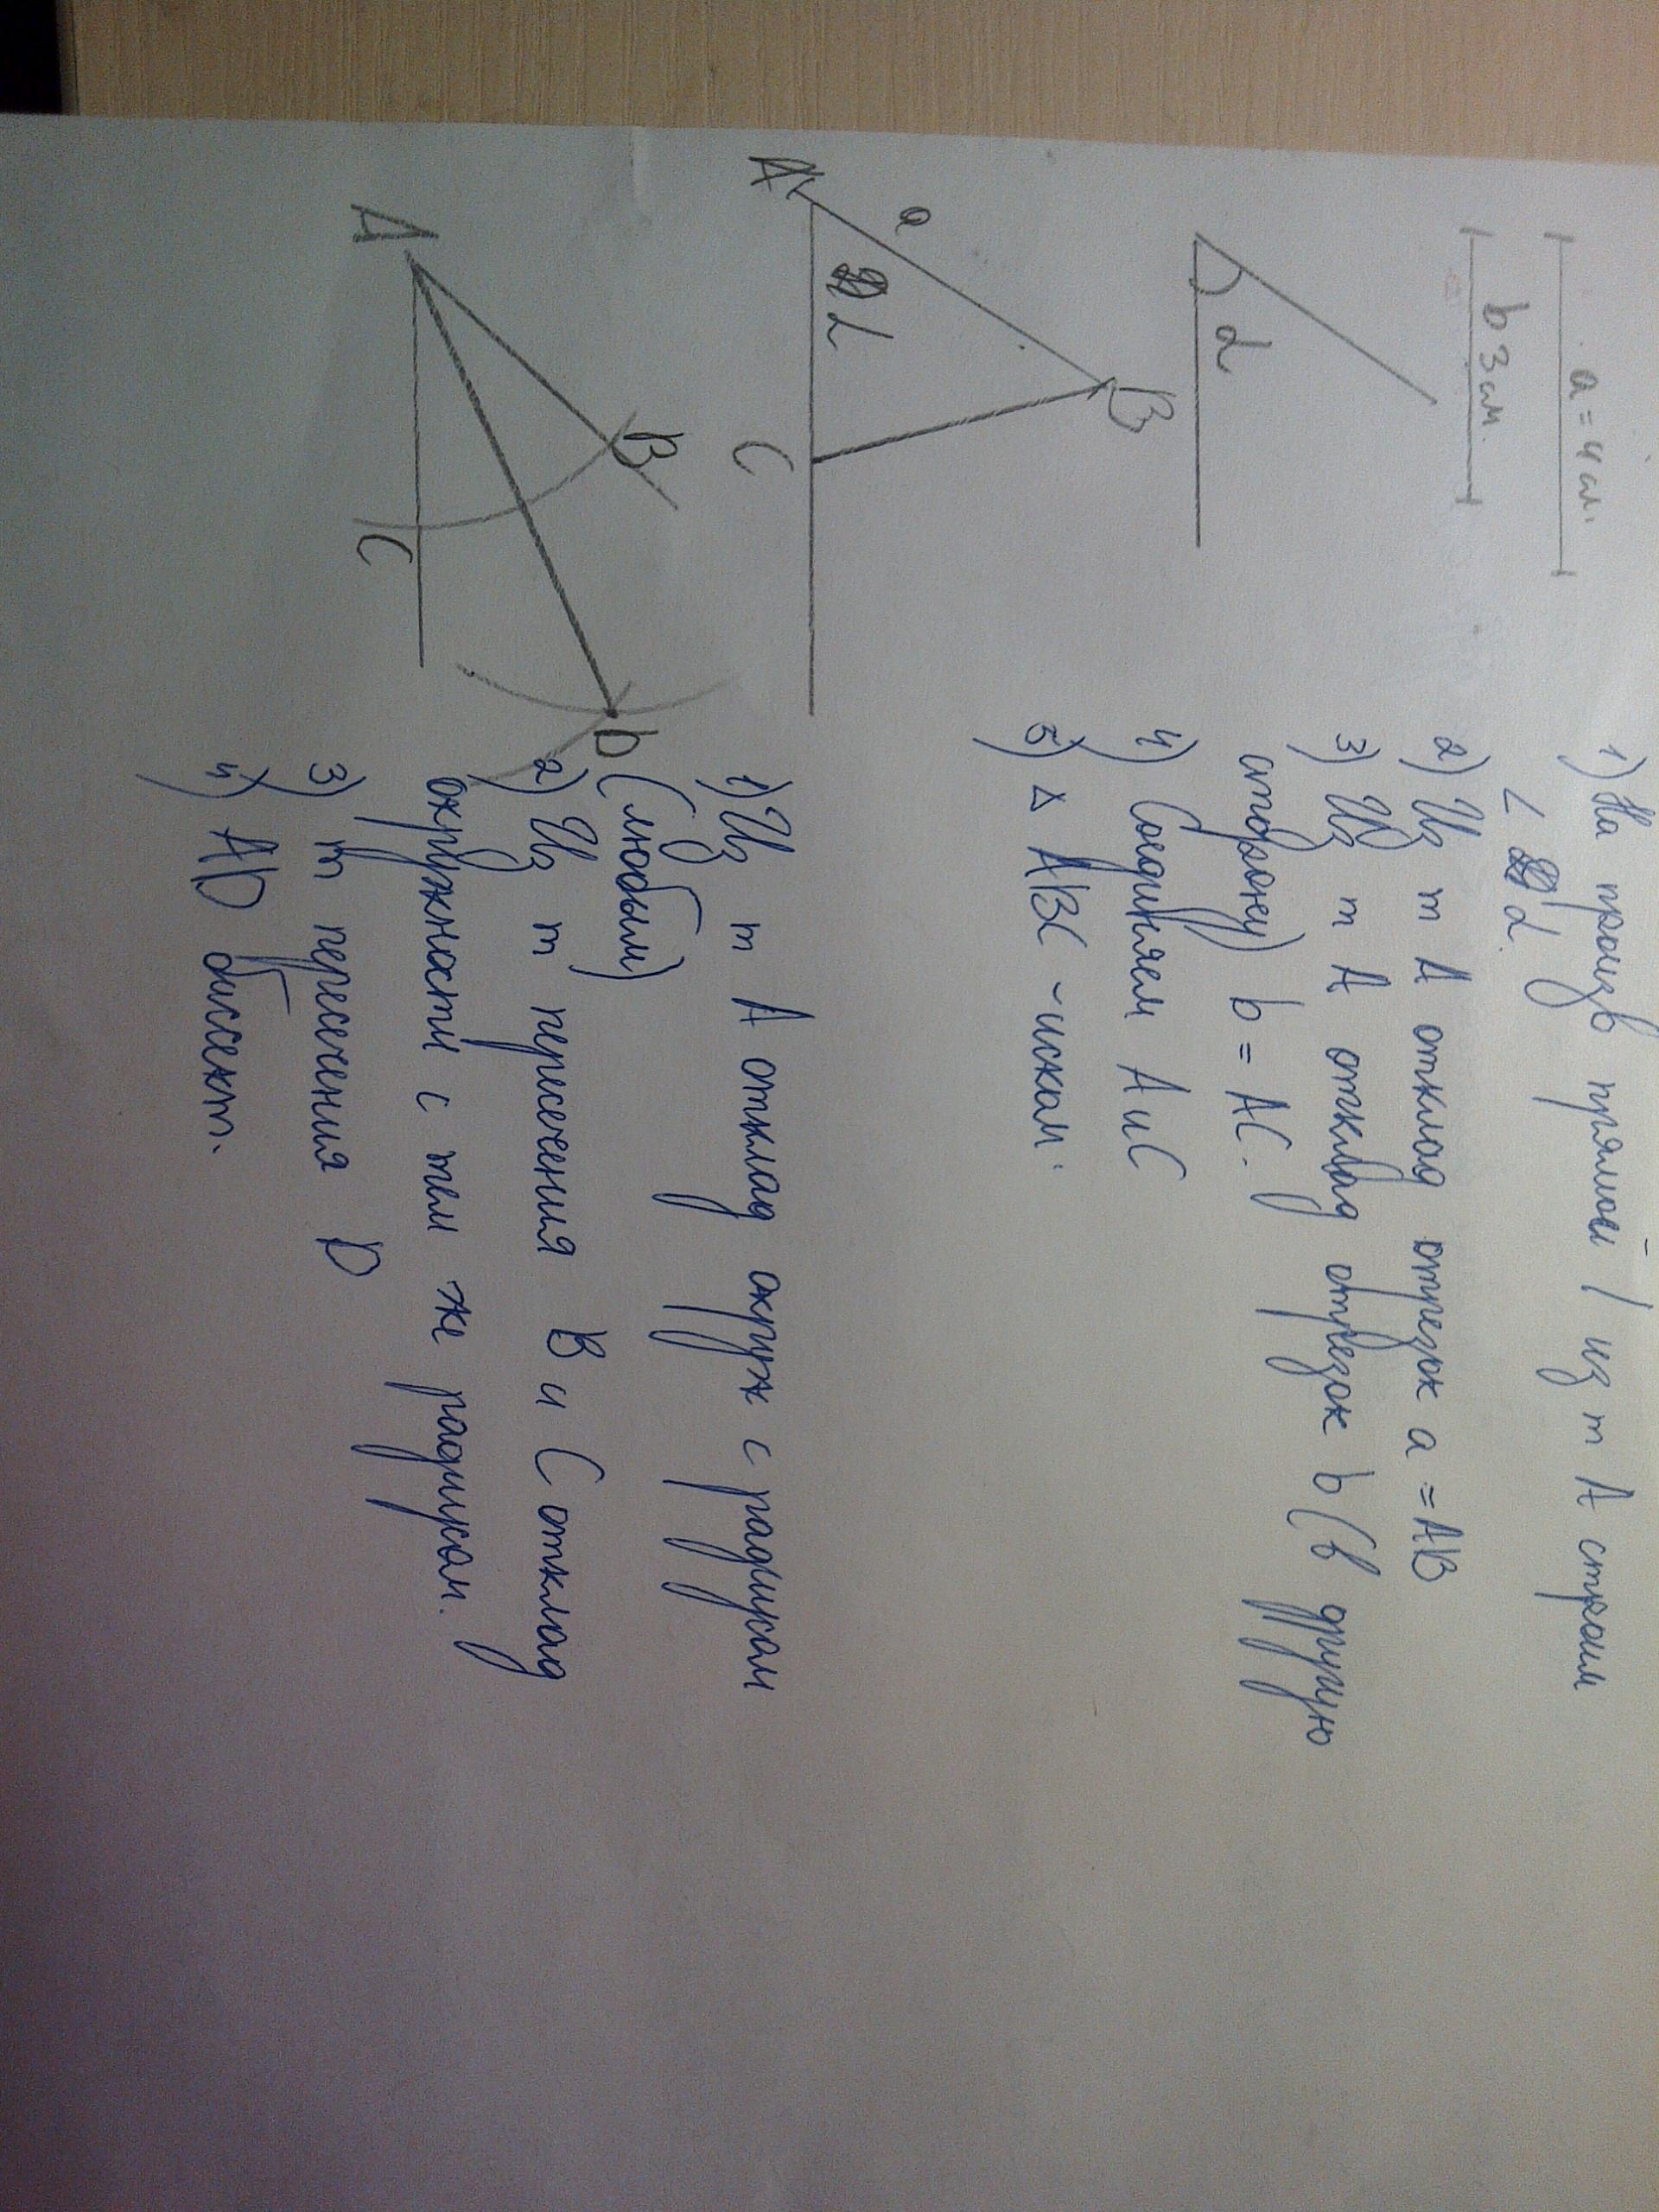 a = 4 см.
b 3 см.
α
1) На произв прямой / из т А строим
∠ α.
2) Из т А отклад отрезок a = AB
3) Из т А отклад отрезок b (в другую
сторону) b = AC.
4) Соединяем А и С
5) △ ABC - иском.
A
a
B
α
C
1) Из т А отклад окруж с радиусом
(любым)
2) Из т пересечения В и С отклад
окружности с тем же радиусам.
3) т пересечения D
4) AD биссект.
A
B
C
D